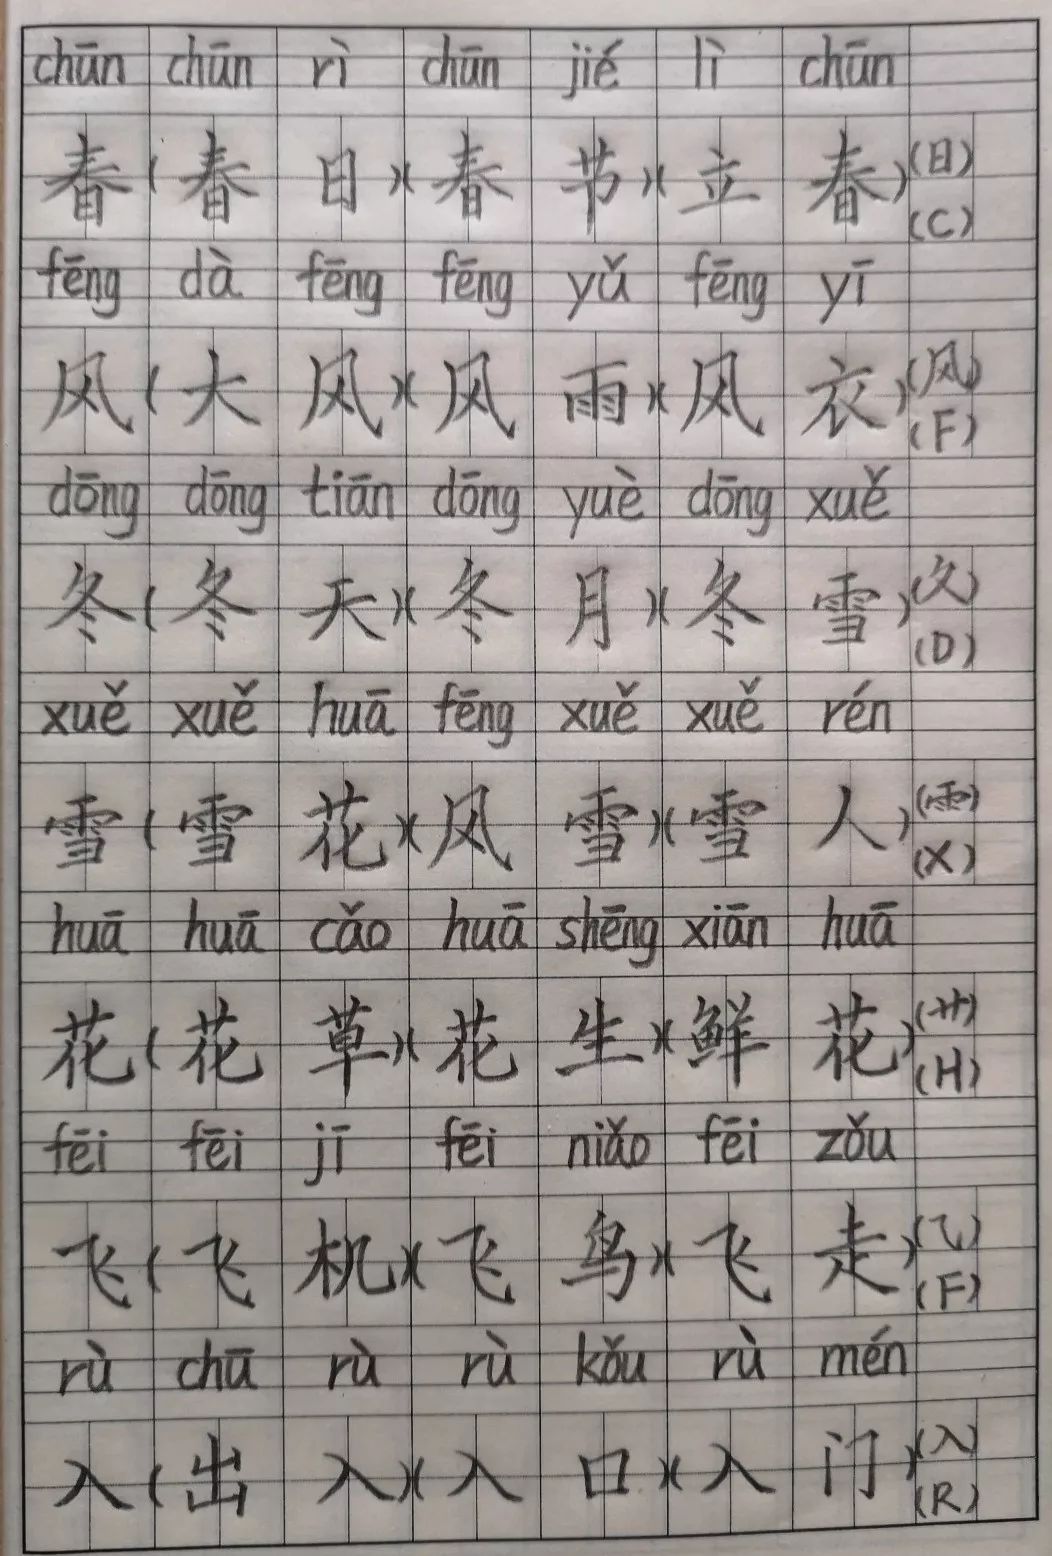 chūn chūn rì chūn jié lì chūn
春(春日)(春节)(立春)(日)
(C)
fēng dà fēng fēng yǔ fēng yī
风(大风)(风雨)(风衣)(风)
(F)
dōng dōng tiān dōng yuè dōng xuě
冬(冬天)(冬月)(冬雪)(夂)
(D)
xuě xuě huā fēng xuě xuě rén
雪(雪花)(风雪)(雪人)(⻗)
(X)
huā huā cǎo huā shēng xiān huā
花(花草)(花生)(鲜花)(艹)
(H)
fēi fēi jī fēi niǎo fēi zǒu
飞(飞机)(飞鸟)(飞走)(乁)
(F)
rù chū rù rù kǒu rù mén
入(出入)(入口)(入门)(入)
(R)